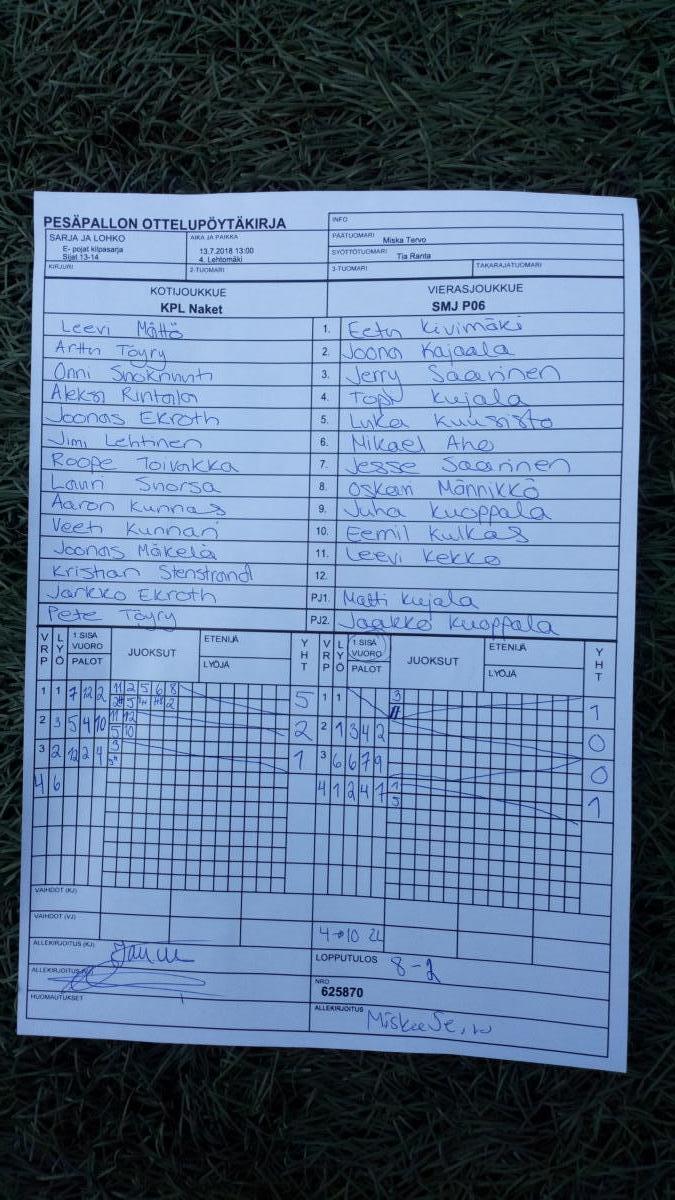 PESÄPALLON OTTELUPÖYTÄKIRJA
INFO
SARJA JA LOHKO
E- pojat kilpasarja
Sijat 13-14
AIKA JA PAIKKA
13.7.2018 13:00
4. Lehtomäki
PÄÄTUOMARI
Miska Tervo
SYÖTTÖTUOMARI
Tia Ranta
KIRJURI
2-TUOMARI
3-TUOMARI
TAKARAJATUOMARI
KOTIJOUKKUE
KPL Naket
VIERASJOUKKUE
SMJ P06
Leevi Mättö 1. Eetu Kivimäki
Arttu Töyry 2. Joona Kajaala
Onni 3. Jerry Saarinen
Aleksi Rintala 4. Topi Kujala
Joonas Ekroth 5. Luka Kuusisto
Jimi Lehtinen 6. Mikael Aho
Roope Toivakka 7. Jesse Saarinen
Lauri Suorsa 8. Oskari Männikkö
Aaron Kunnas 9. Juha Kuoppala
Veeti Kunnari 10. Eemil Kulkas
Joonas Mäkelä 11. Leevi Kekko
Kristian Stenstrand 12.
Jarkko Ekroth PJ1. Matti Kujala
Pete Töyry PJ2. Jaakko Kuoppala
VRP LYÖ 1.SISÄ VUORO PALOT JUOKSUT ETENIJÄ LYÖJÄ YHT VRP LYÖ 1.SISÄ VUORO PALOT JUOKSUT ETENIJÄ LYÖJÄ YHT
1 1 7 12 2 11 2 5 6 8 5 1 1 3 1
2 3 5 4 10 11 12 2 2 1 3 4 2 0
5 10
3 2 12 2 4 3 1 3 6 6 7 9 0
4 6 4 1 2 4 7 1 1
3
VAIHDOT (KJ)
VAIHDOT (VJ)
4→10
ALLEKIRJOITUS (KJ)
LOPPUTULOS 8-2
NRO
625870
HUOMAUTUKSET
ALLEKIRJOITUS